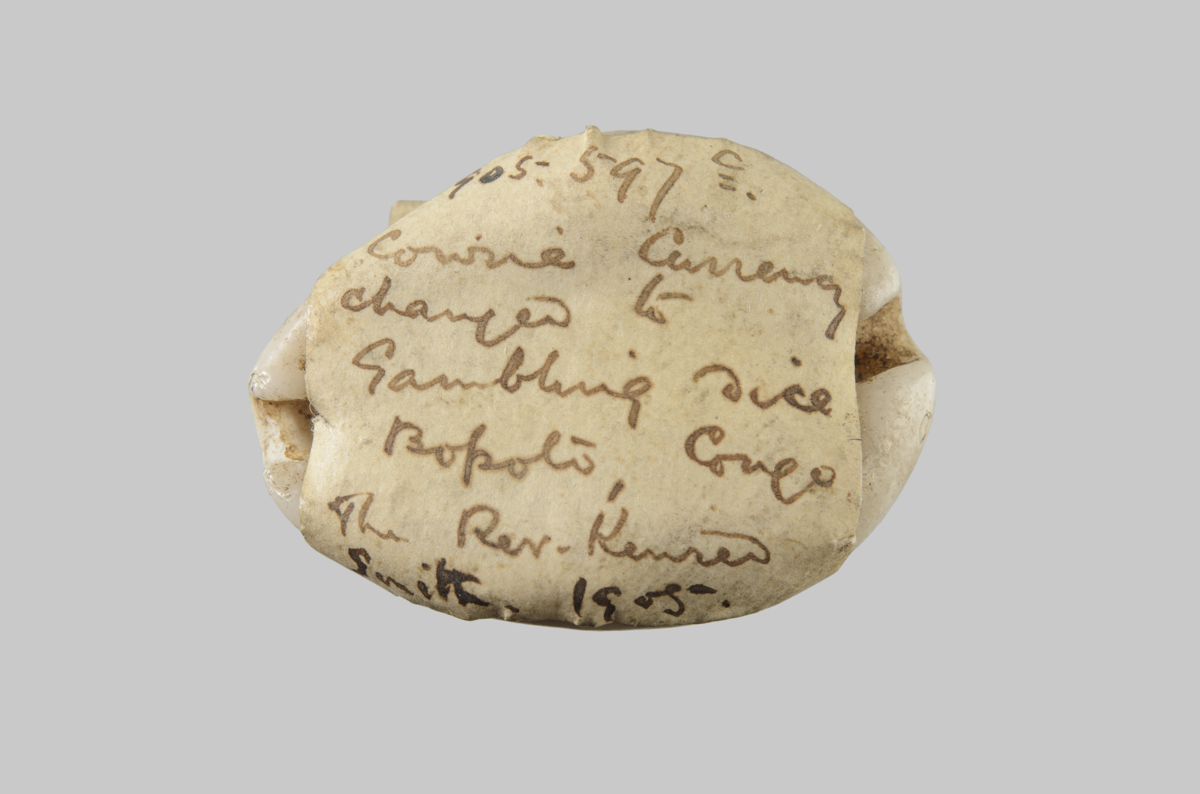 905. 597 c.
Cowrie Currency
changed to
Gambling dice
Bopoto, Congo
The Rev. Kenred
Smith. 1905.